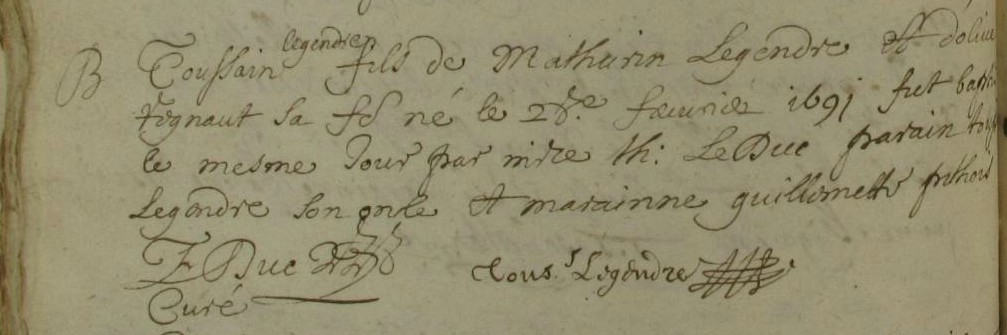 B Toussain legendre fils de Mathurin Legendre Et d'olive
regnaut sa fe né le 28.e feuvrier 1691 fut baptisé
le mesme Jour par mire th: LeDuc parain touss
Legendre son oncle Et marainne guillemette
T LeDuc
Touss Legendre
Curé